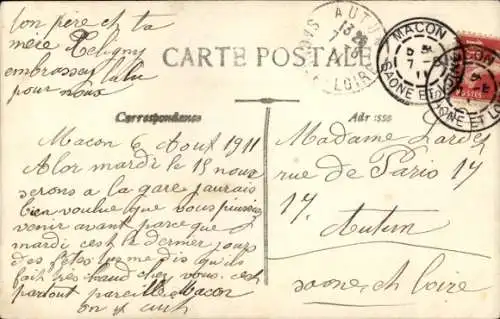 ton père et ta
mère Poligny
embrasser
pour nous
CARTE POSTALE
AUTUN
MACON
7-8
11
SAONE ET
Correspondance
Adresse
Macon 6 Aout 1911
Alor mardi le 15 nous
serons a la gare j'aurais
bien voulue que vous puissiez
venir avant parce que
mardi c'est le dernier jour
des fêtes tu me dis qu'ils
fait très haud chez vous c'est
partout pareille Macon
on cuit
Madame
rue de Paris 17
17.
Autun
saone et loire